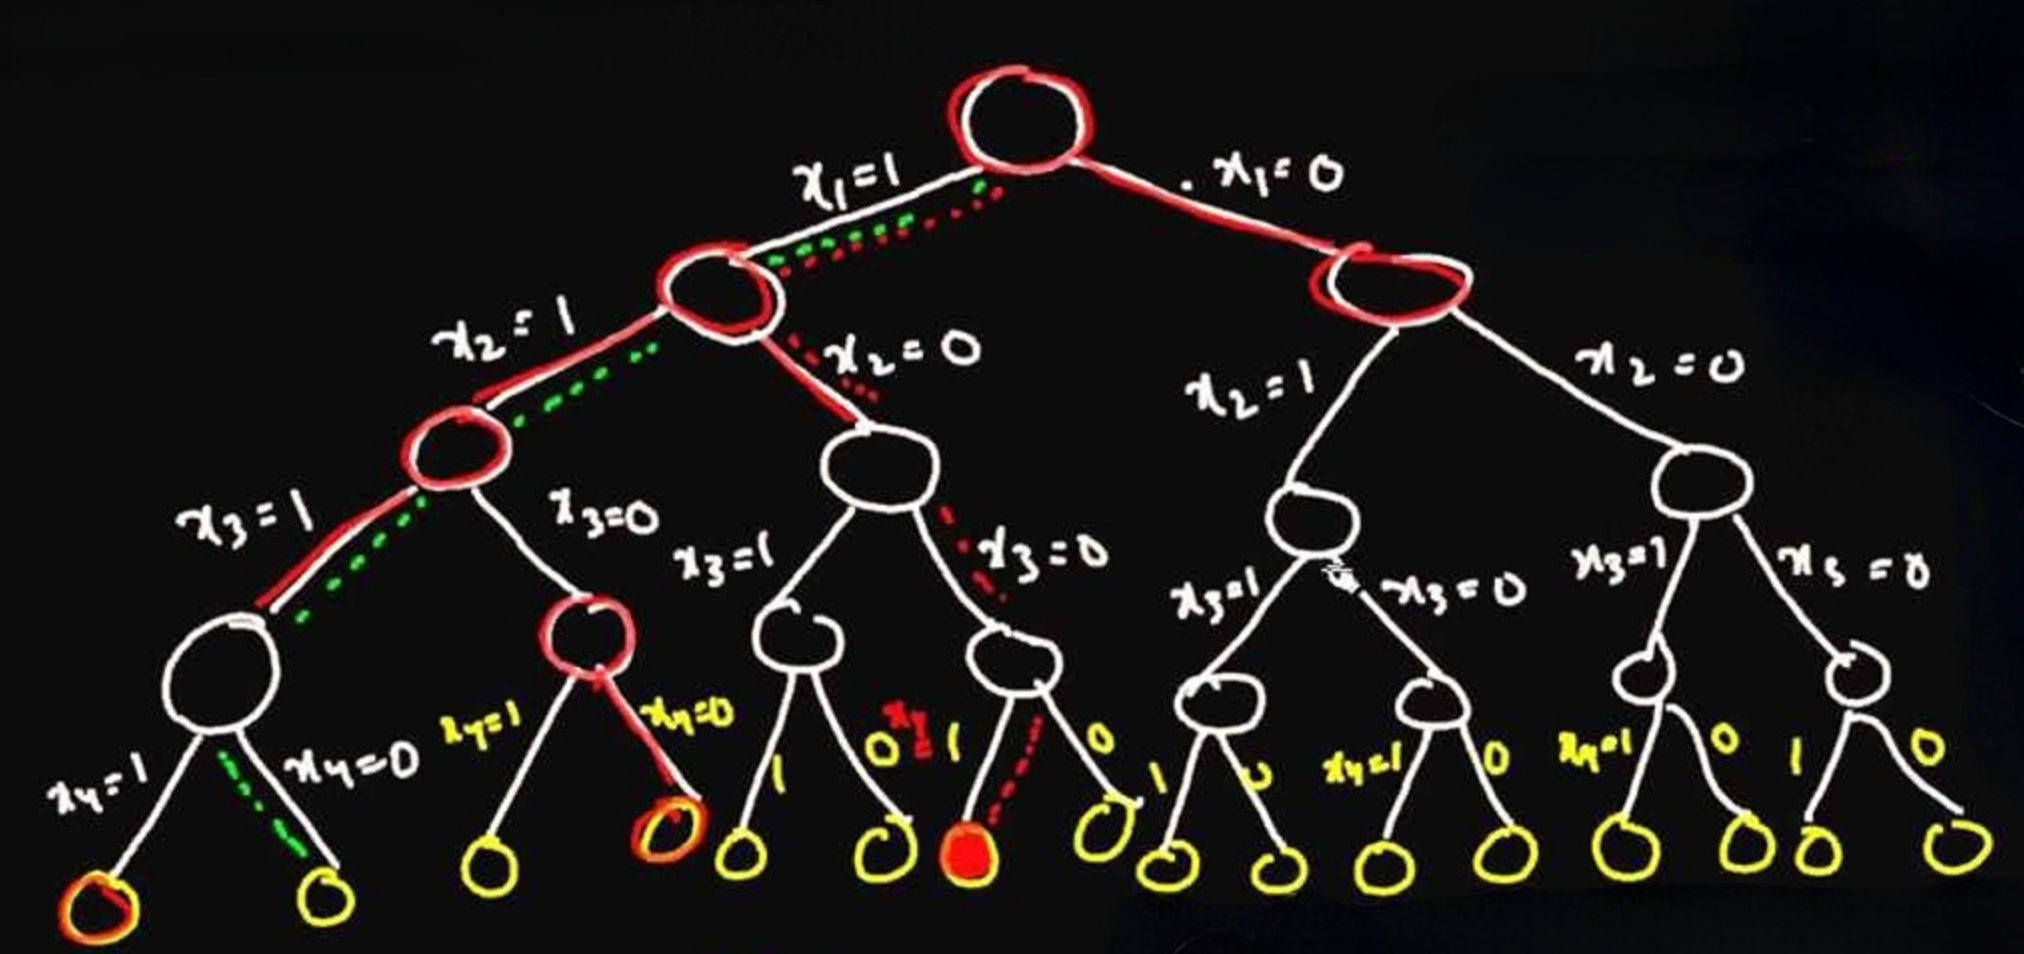 x₁=1
x₁=0
x₂=1
x₂=0
x₂=1
x₂=0
x₃=1
x₃=0
x₃=1
x₃=0
x₃=1
x₃=0
x₃=1
x₃=0
x₄=1
x₄=0
x₄=1
x₄=0
1
0
x₄=1
0
1
0
x₄=1
0
x₄=1
0
1
0